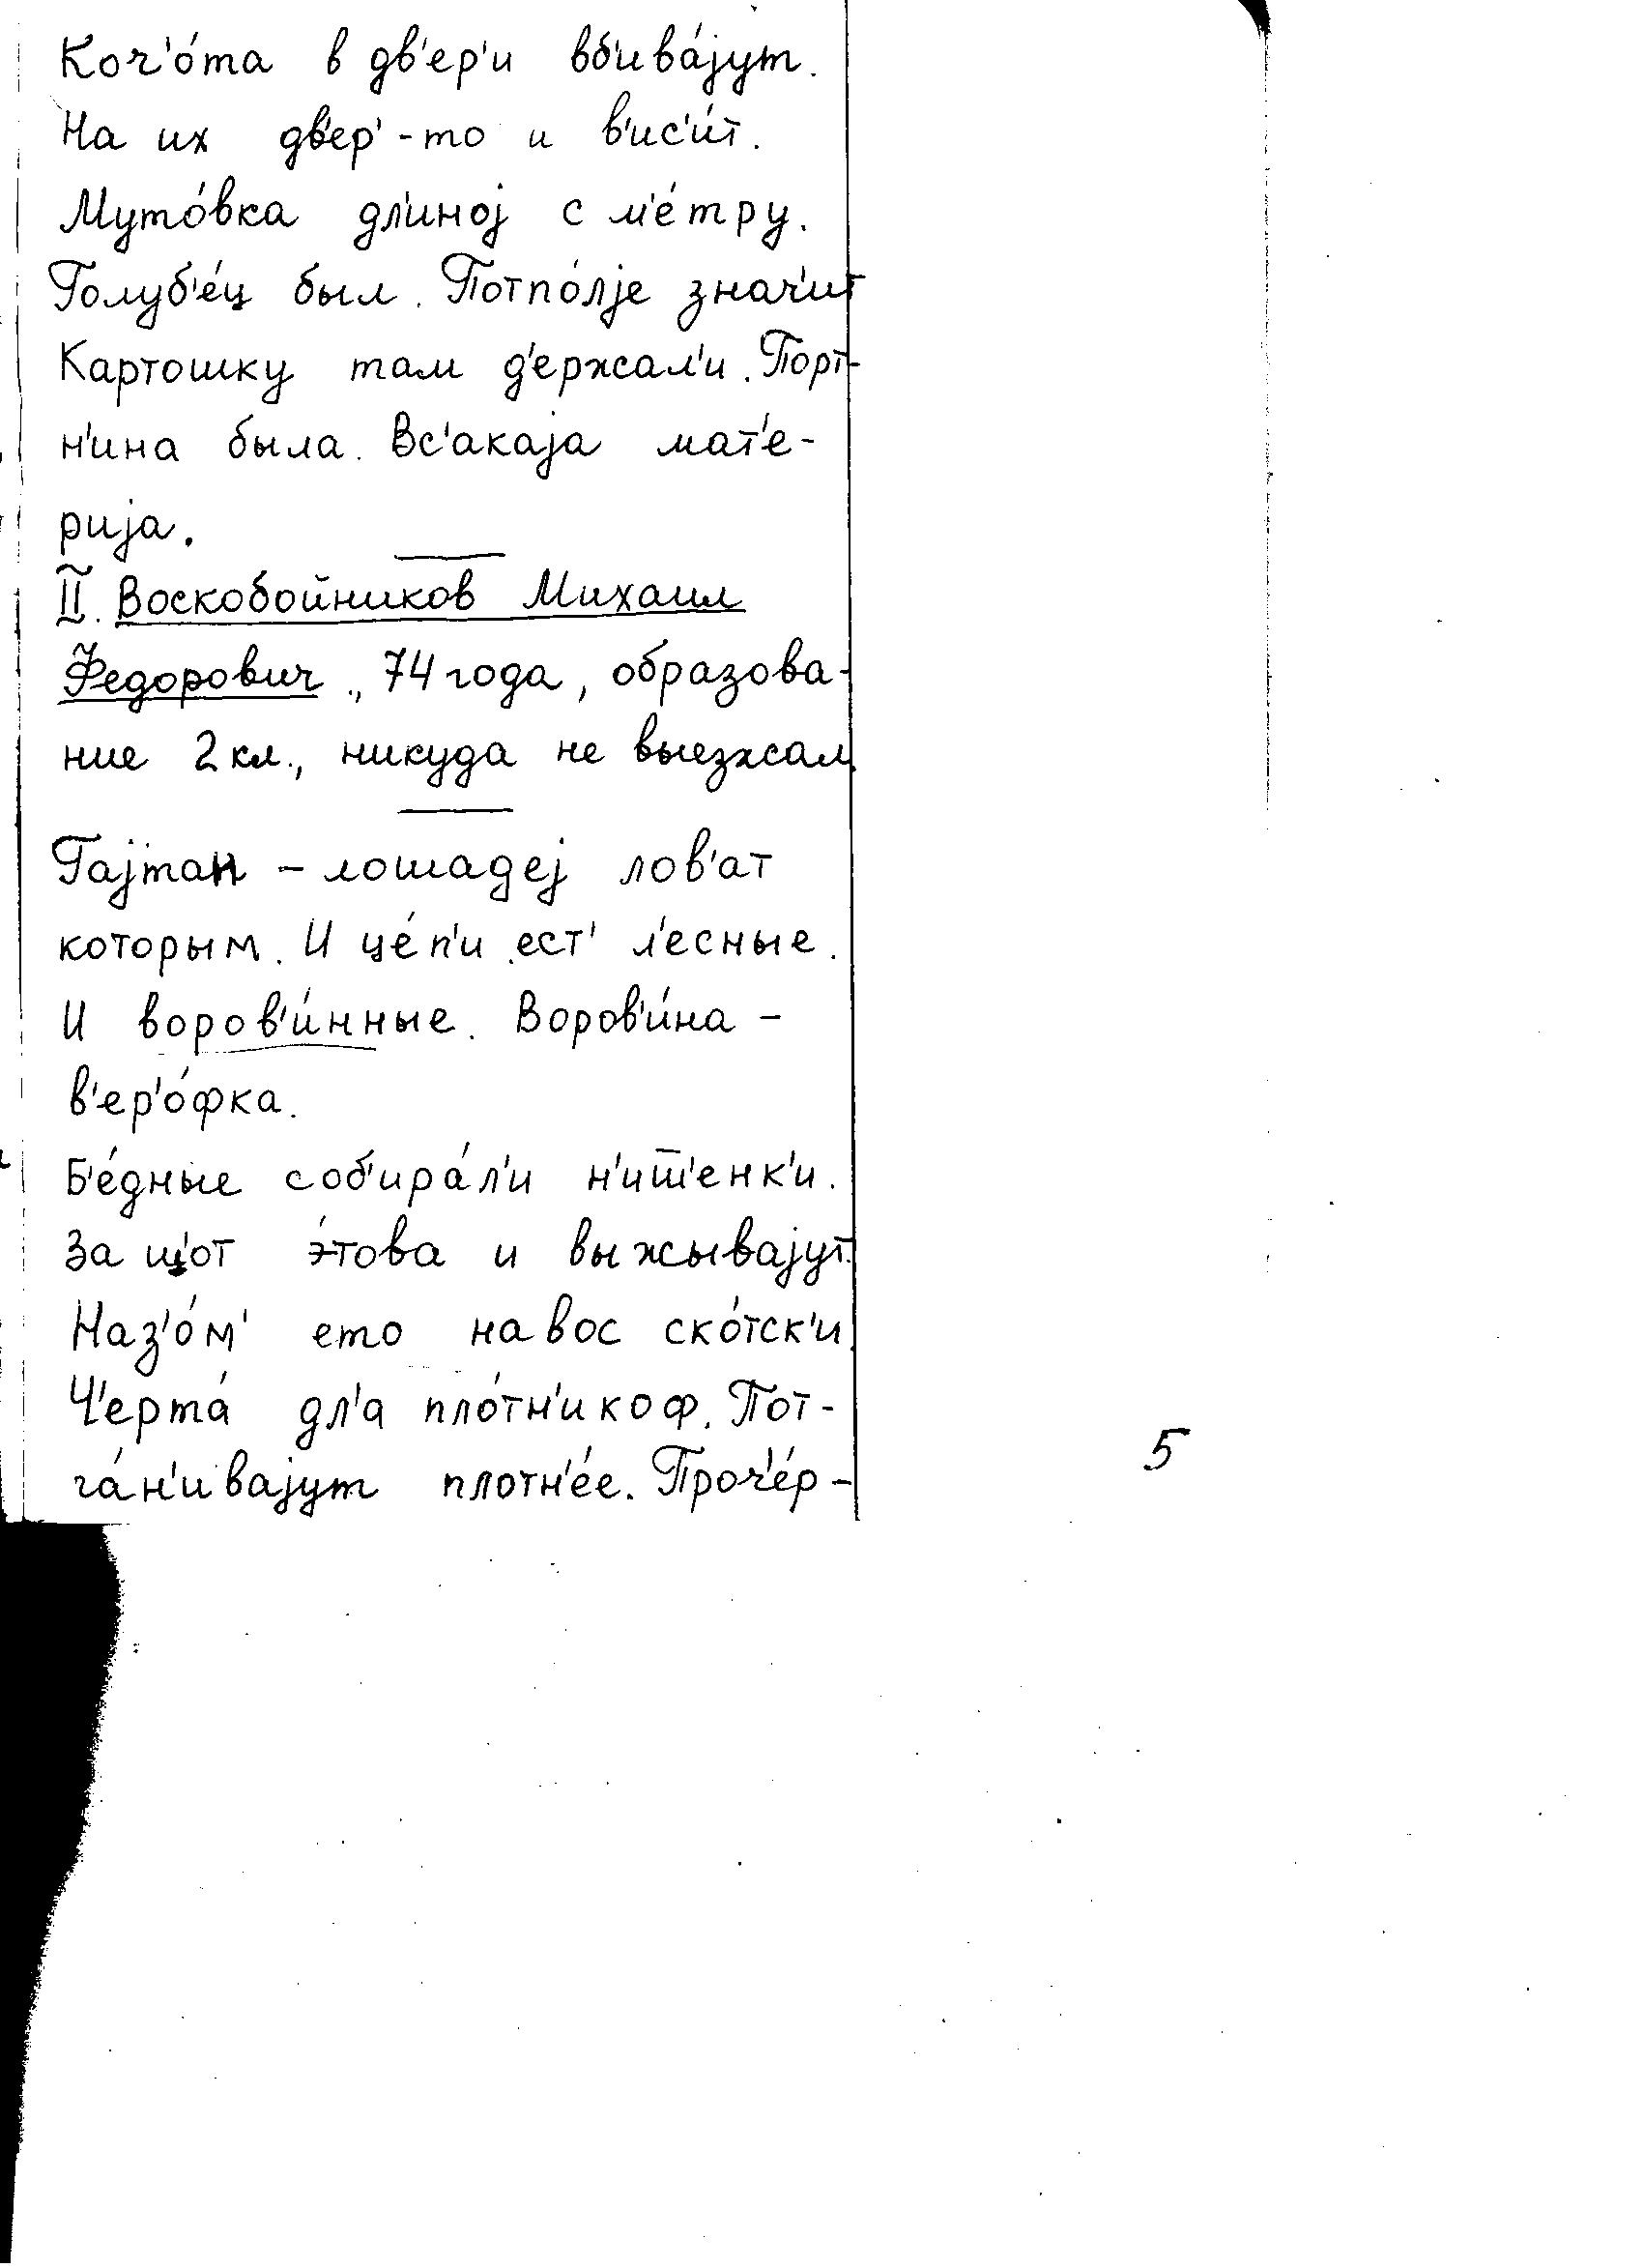 Коч'о́та в дв'ер'и вб'ива́јут.
На их дв'ер'-то и в'ис'и́т.
Муто́вка дл'иној с м'е́тру.
Голуб'е́ц был. Потпо́лје знач'ит
Картошку там д'ержал'и. Порт-
н'ина была. Вс'акаја мат'е-
рија.
II. Воскобойников Михаил
Федорович., 74 года, образова-
ние 2 кл., никуда не выезжал.
Гајтан – лошадеј лов'ат
которым. И це́п'и ест' л'есные.
И воров'и́нные. Воров'и́на –
в'ер'о́фка.
Б'е́дные соб'ира́л'и н'ит'енк'и.
За щ'от э́това и выжывајут.
Наз'о́м' ето навос ско́тск'и.
Ч'ерта́ дл'а пло́тн'икоф. Пот-
га́н'ивајут плотн'е́е. Проч'е́р-
5